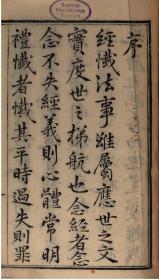 序
經懺法事雖屬應世之文
實度世之梯航也念經者念
念不失經義則心體常明
禮懺者懺其平時過失則罪